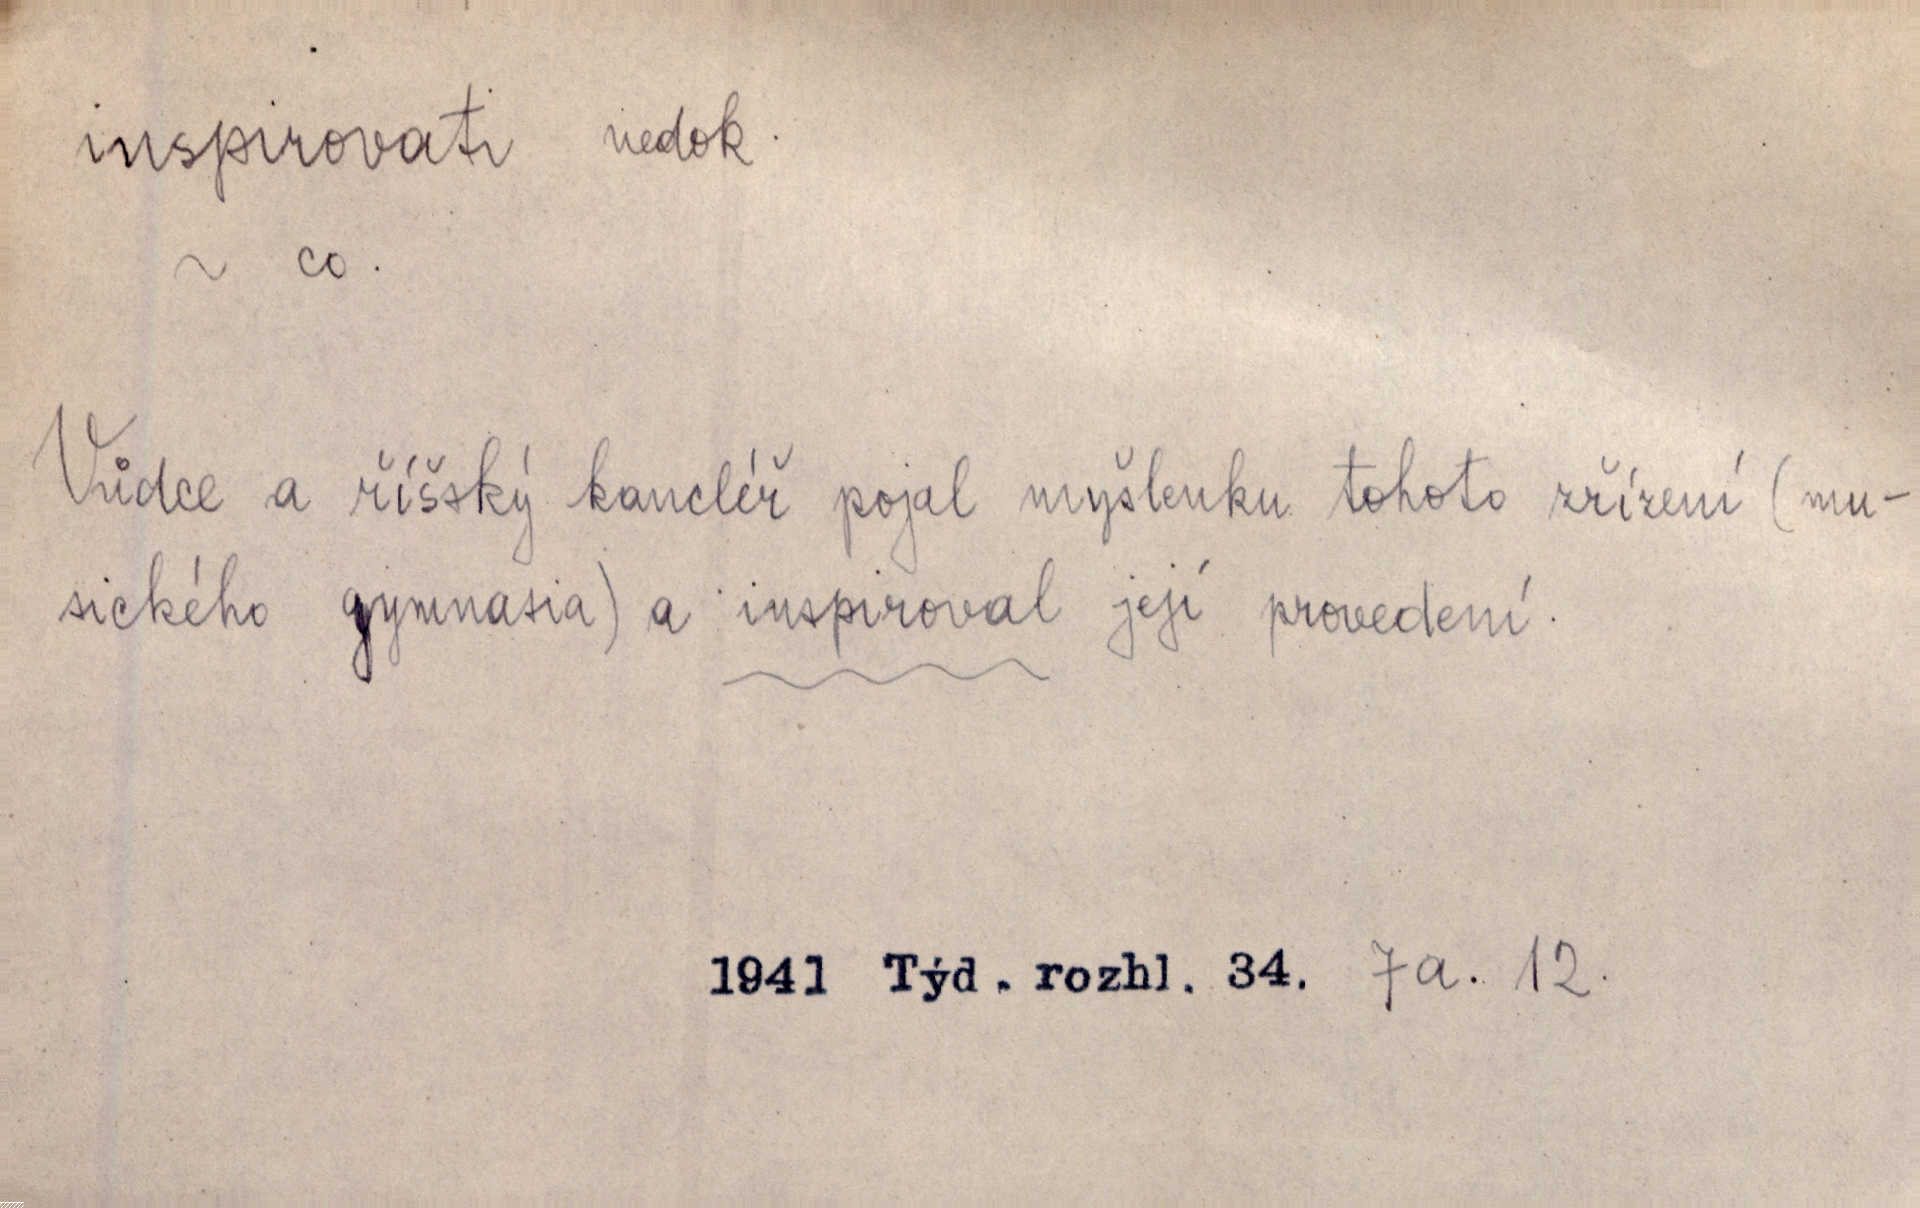 inspirovati nedok.
~ co.
Vůdce a říšský kancléř pojal myšlenku tohoto zřízení (mu-
sického gymnasia) a inspiroval její provedení.
1941 Týd. rozhl. 34. 7a. 12.